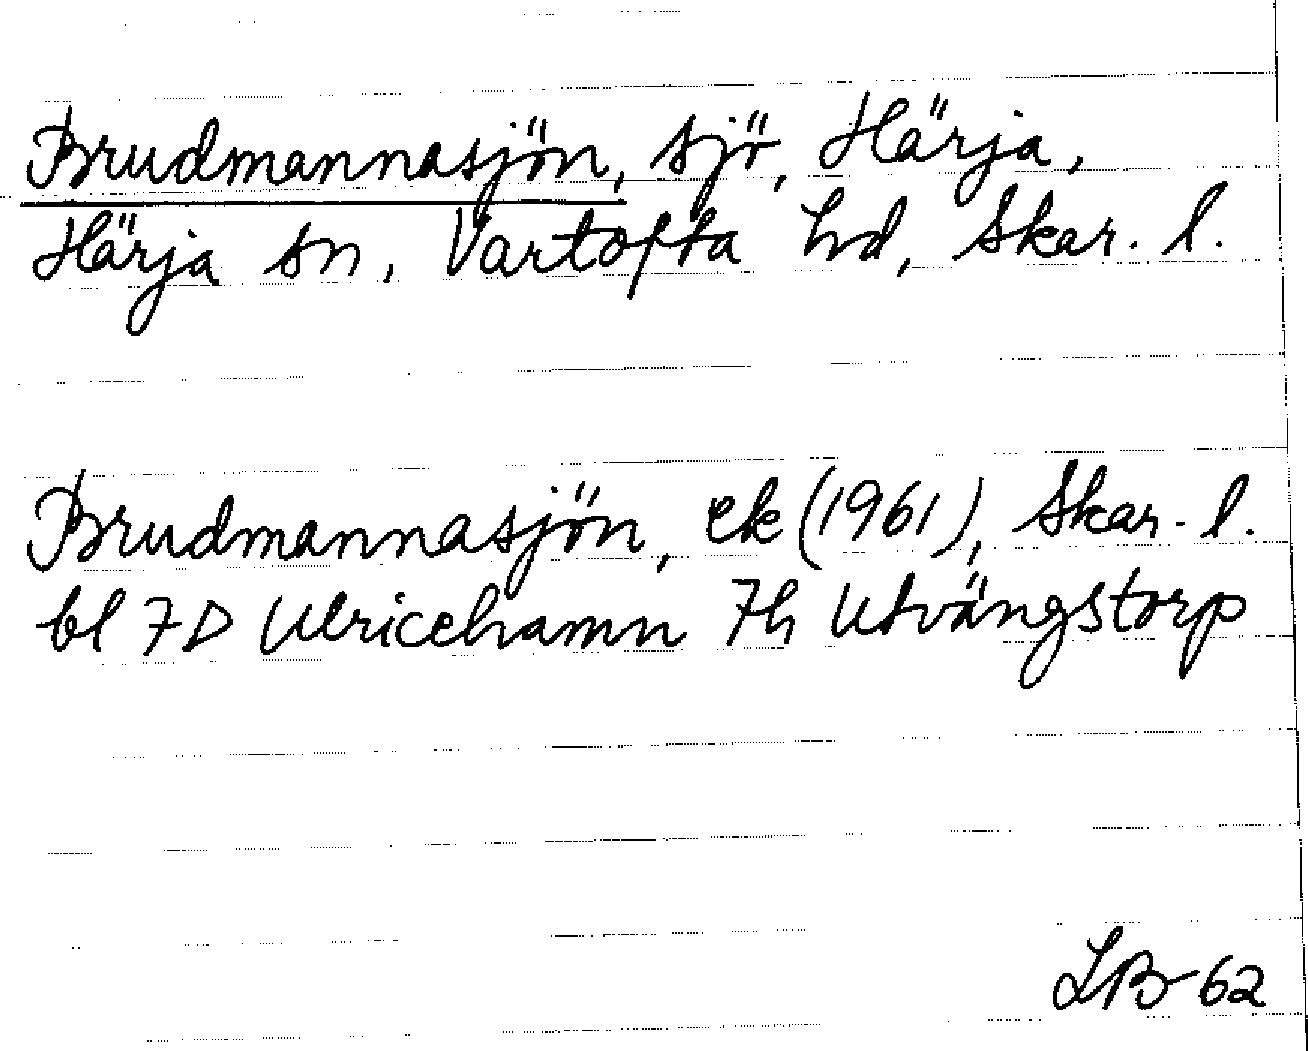 Brudmannasjön, sjö, Härja,
Härja sn, Vartofta hd, Skar. l.
Brudmannasjön, ek (1961), Skar. l.
bl 7D Ulricehamn 7h Utvängstorp
LB 62